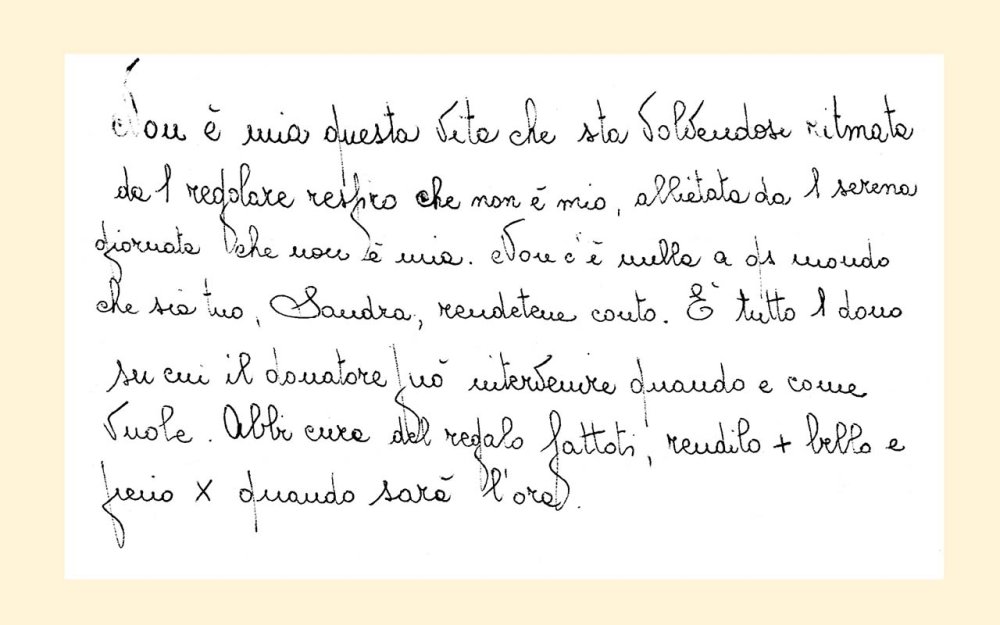 Non è mia questa vita che sta volvendosi ritmata
da 1 regolare respiro che non è mio, allietata da 1 serena
giornata che non è mia. Non c'è nulla a qs mondo
che sia tuo, Sandra, rendetene conto. È tutto 1 dono
su cui il donatore può intervenire quando e come
vuole. Abbi cura del regalo fattoti, rendilo + bello e
pieno X quando sarà l'ora.